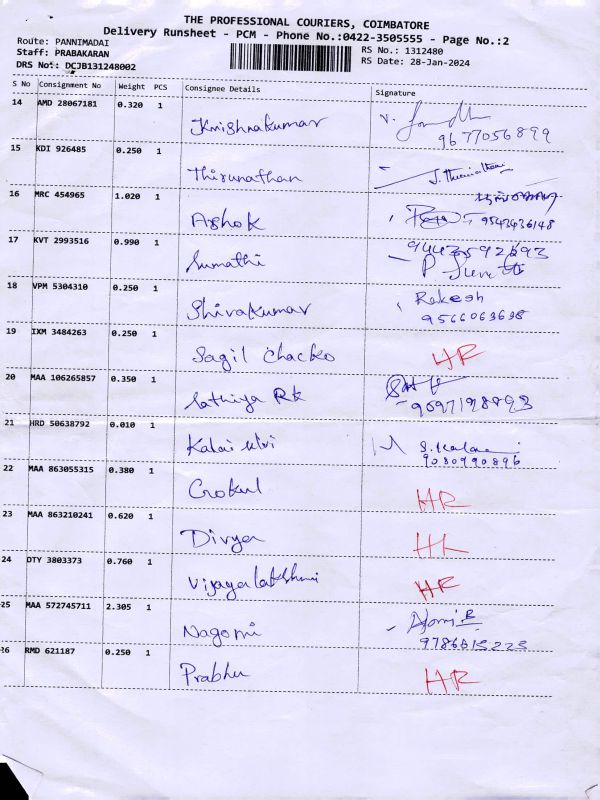 THE PROFESSIONAL COURIERS, COIMBATORE
Delivery Runsheet - PCM - Phone No.:0422-3505555 - Page No.:2
Route: PANNIMADAI
Staff: PRABAKARAN
DRS No: DCJB131248002
RS No.: 1312480
RS Date: 28-Jan-2024
S No Consignment No Weight PCS Consignee Details Signature
14 AMD 28067181 0.320 1 Krishnakumar
9677056899
15 KDI 926485 0.250 1 Thirunathan J. Thirunathan
16 MRC 454965 1.020 1 Ashok 9543436148
17 KVT 2993516 0.990 1 Sumathi 9443592693
18 VPM 5304310 0.250 1 Shivakumar Rakesh
9566063638
19 IXM 3484263 0.250 1 Sagil Chacko HR
20 MAA 106265857 0.350 1 Sathiya Rk
9597198893
21 HRD 50638792 0.010 1 Kalai S. Kalai
9080990896
22 MAA 863055315 0.380 1 Gokul HR
23 MAA 863210241 0.620 1 Divya HR
24 DTY 3803373 0.760 1 Vijayalakshmi HR
25 MAA 572745711 2.305 1 Nagomi
9786615225
26 RMD 621187 0.250 1 Prabhu HR